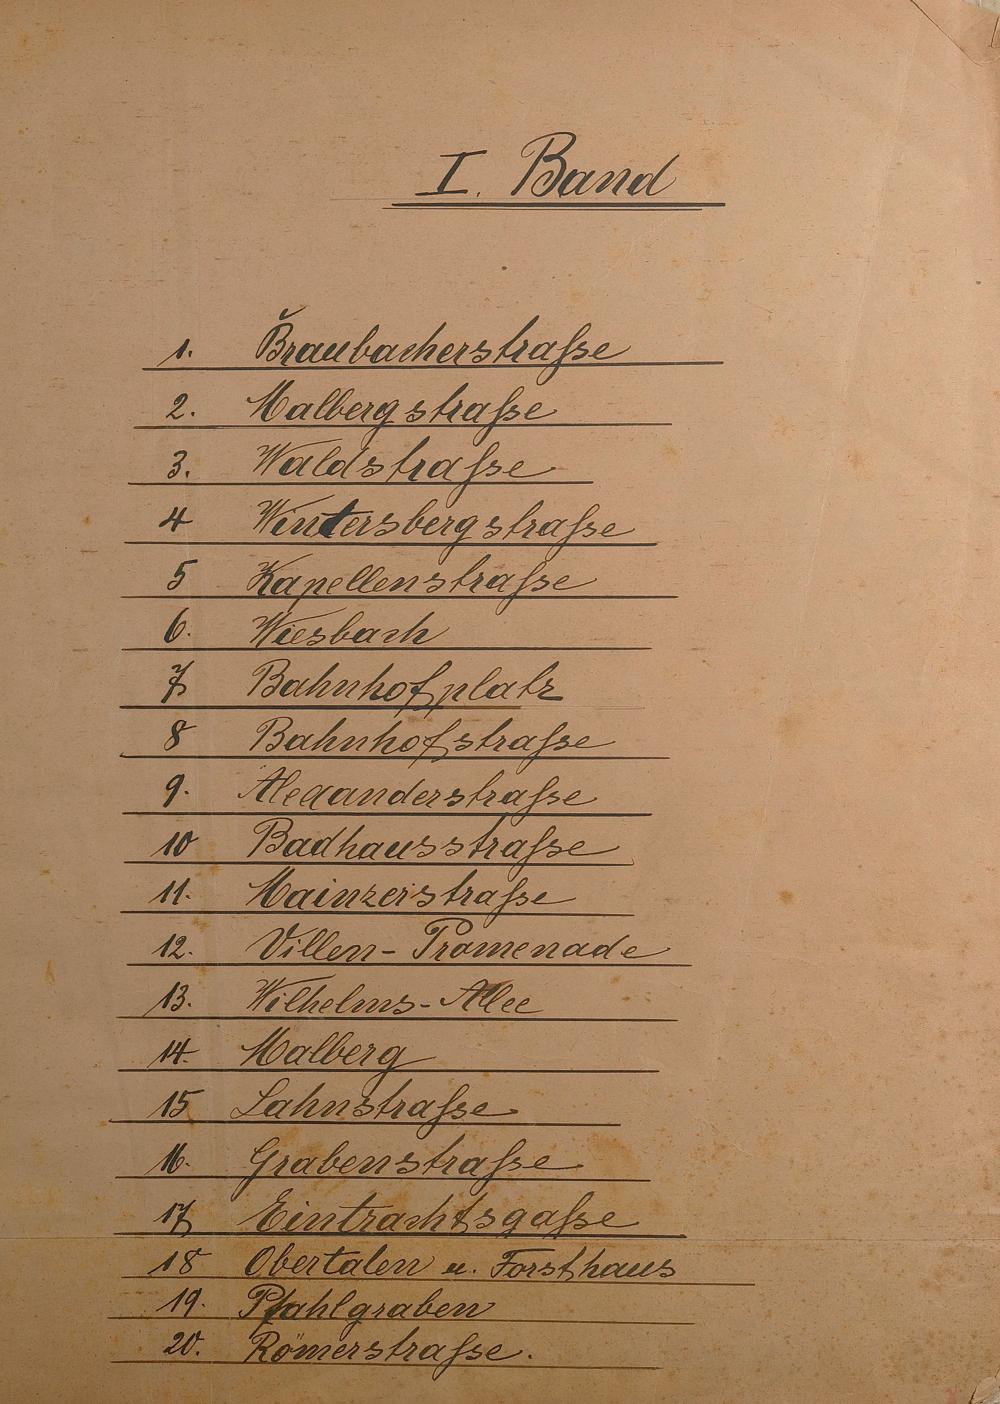 I. Band
1. Braubacherstrasse
2. Malbergstrasse
3. Waldstrasse
4 Wintersbergstrasse
5 Kapellenstrasse
6. Wiesbach
7 Bahnhofplatz
8 Bahnhofstrasse
9. Alexanderstrasse
10 Badhausstrasse
11. Mainzerstrasse
12. Villen-Promenade
13. Wilhelms-Allee
14. Malberg
15 Lahnstrasse
16. Grabenstrasse
17 Eintrachtsgasse
18 Obertalen u. Forsthaus
19. Pfahlgraben
20. Römerstrasse.